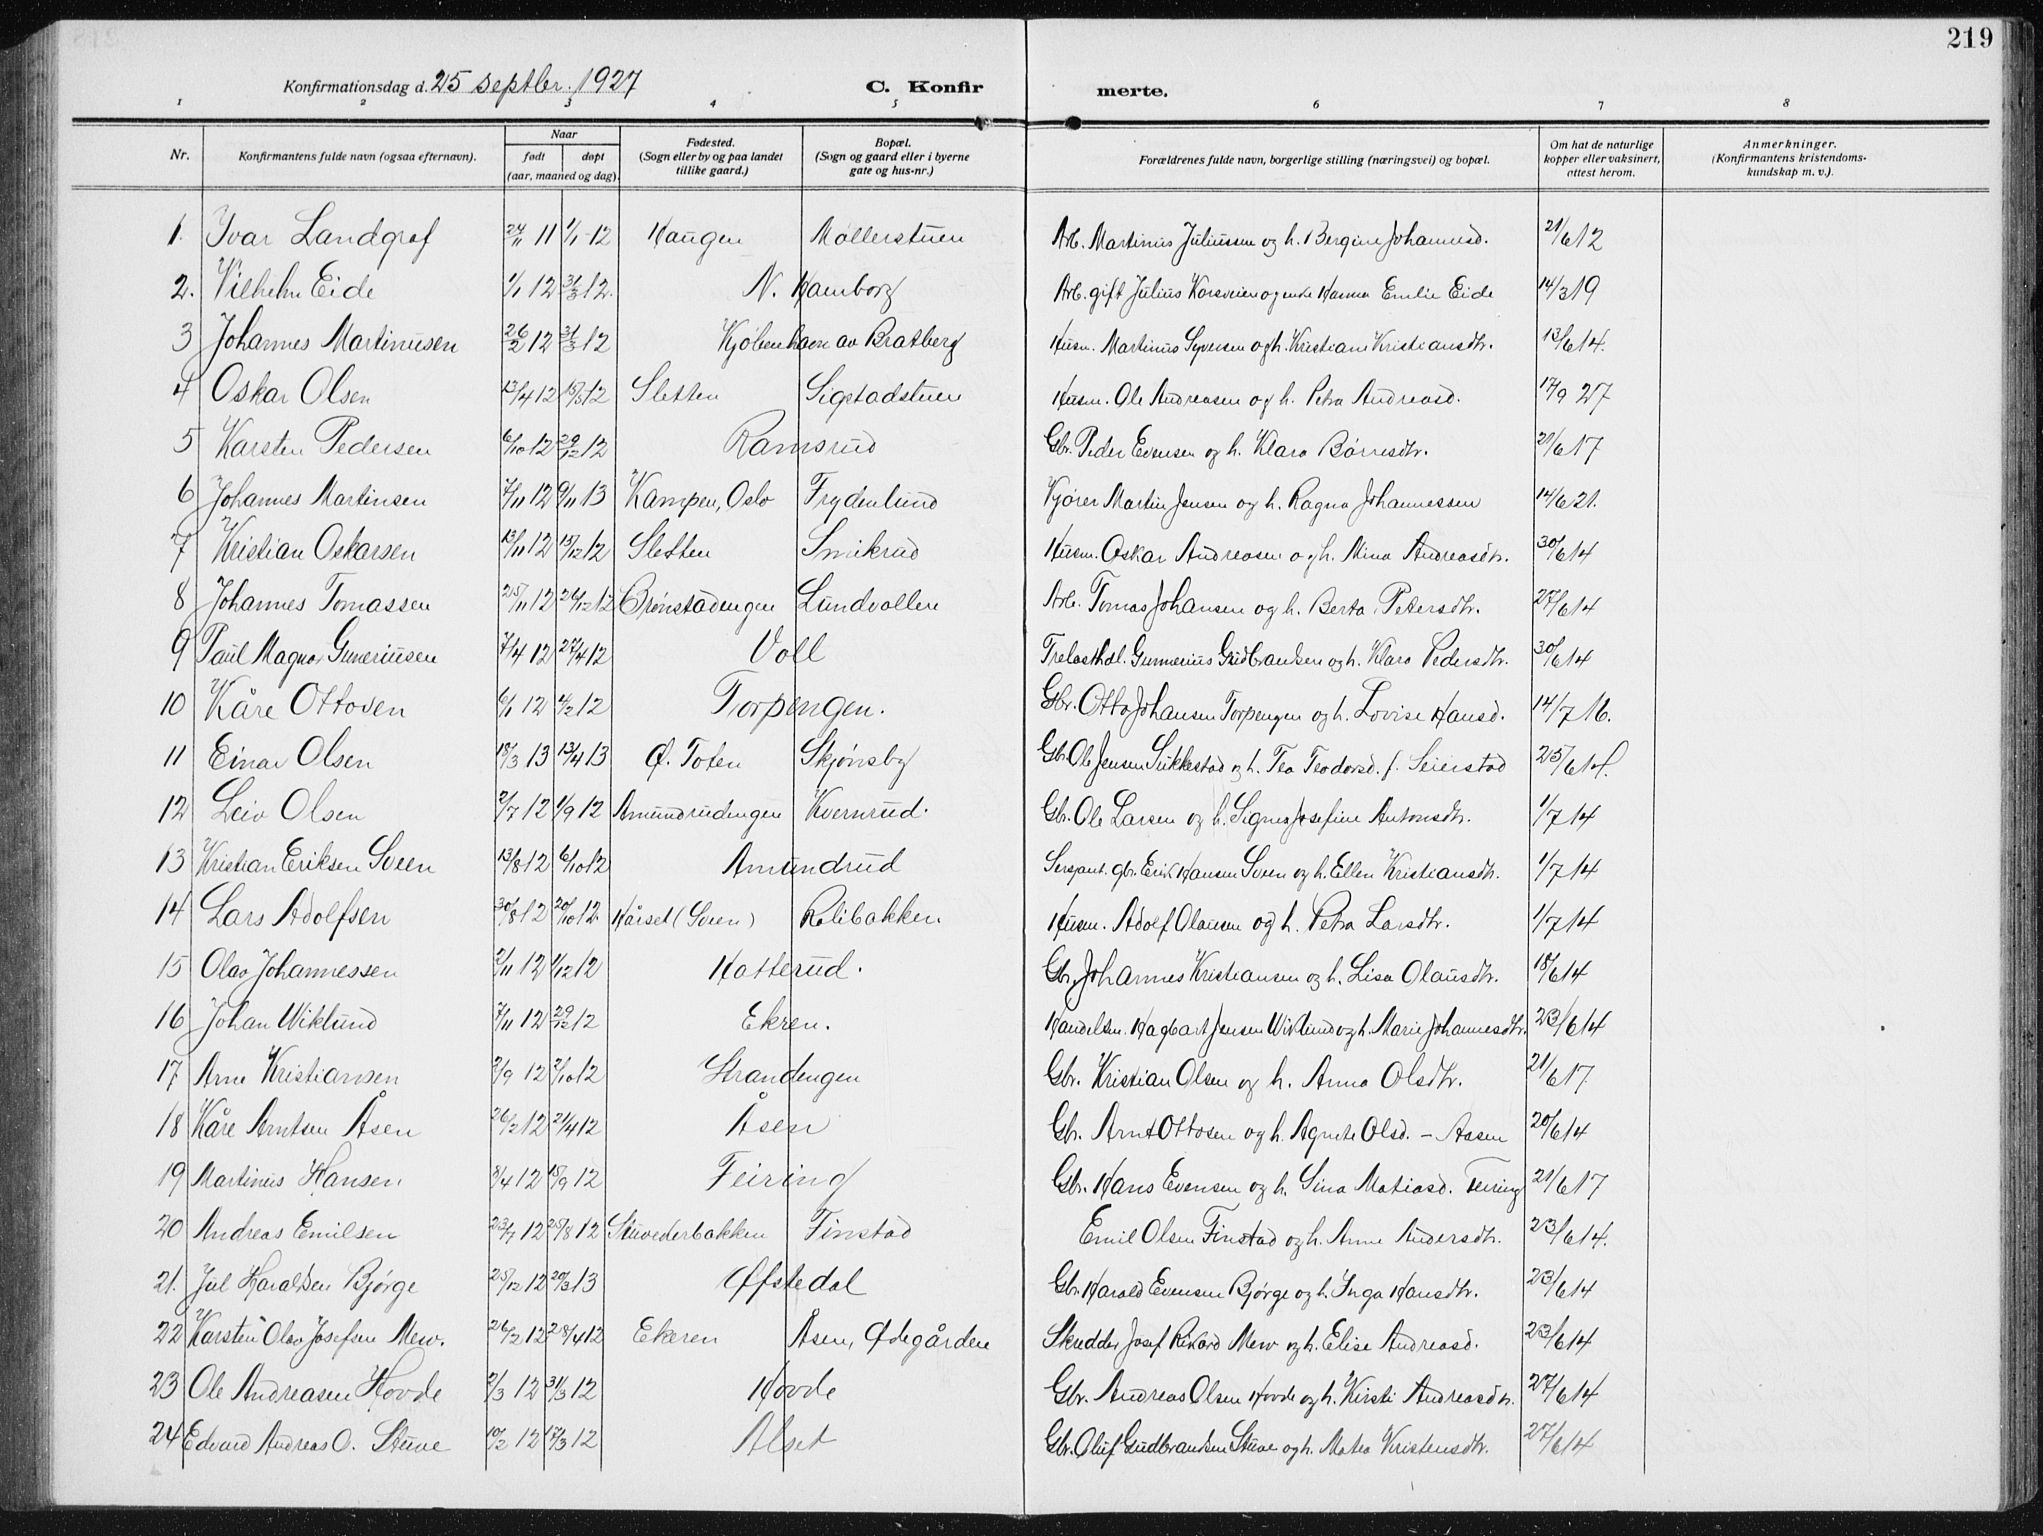 219
Konfirmationsdag d. 25 septbr. 1927 C. Konfir merte.
1 2 3 4 5 6 7 8
Nr. Konfirmantens fulde navn (ogsaa efternavn). Naar født døpt (aar, maaned og dag). Fødested. (Sogn eller by og paa landet tillike gaard.) Bopæl. (Sogn og gaard eller i byerne gate og hus-nr.) Forældrenes fulde navn, borgerlige stilling (næringsvei) og bopæl. Om hat de naturlige kopper eller vaksinert, attest herom. Anmerkninger. (Konfirmantens kristendoms-kundskap m. v.).
1. Ivar Landgraf 24/11 11 1/1-12 Haugen Møllerstuen Arb. Martinus Juliussen og h. Bergine Johannesd. 21/6 12
2. Vilhelm Eide 1/1 12 31/3 12. N. Hamborg Arb. gift Julius Korsveien og enke Hanna Emilie Eide 14/3 19
3 Johannes Martinusen 26/2 12 31/3 12 Kjøbenhavn av Bratberg Husm. Martinus Syversen og h. Kristiane Kristiansdtr. 13/6 14.
4 Oskar Olsen 13/4 12 15/5 12 Sletten Sigstadstuen Husm. Ole Andreasen og h. Petra Andreasd. 17/9 27
5 Karsten Pedersen 6/10 12 29/12 12 Ramsrud Gbr. Peder Evensen og h. Klara Børresdtr. 21/6 17
6 Johannes Martinsen 7/11 12 9/11 13 Kampen, Oslo Frydenlund Kjører Martin Jensen og h. Ragna Johannessen 14/6 21.
7 Kristian Oskarsen 13/11 12 15/12 12 Sletten Smikrud Husm. Oskar Andreasen og h. Mina Andreasdtr. 30/6 14
8 Johannes Tomassen 25/11 12 26/12 12 Grønstadengen Lundvollen Arb. Tomas Johansen og h. Berta Petersdtr. 27/6 14
9 Paul Magnar Guneriusen 7/4 12 27/4 12 Voll Trelasthdl. Gunnerius Gudbrandsen og h. Klara Pedersdtr. 30/6 14
10 Kåre Ottosen 6/1 12 4/2 12 Torpengen. Gbr. Otto Johansen Torpengen og h. Lovise Hansd. 14/7 16.
11 Einar Olsen 18/3 13 13/4 13 Ø. Toten Skjønsby Gbr. Ole Jensen Sukkestad og h. Tea Teodorsd. f. Seierstad 25/6 14.
12 Leiv Olsen 2/7 12 1/9 12 Amundrudengen Kvernrud. Gbr. Ole Larsen og h. Signe Josefine Antonsdtr. 1/7 14
13 Kristian Eriksen Sveen 13/8 12 6/10 12 Amundrud Sersjant. gbr. Erik Hansen Sveen og h. Ellen Kristiansdtr. 1/7 14
14 Lars Adolfsen 30/8 12 20/10 12. Hårset (Sveen) Relibakken. Husm. Adolf Olausen og h. Petra Larsdtr. 1/7 14
15 Olav Johannessen 2/11 12 1/12 12 Hatterud. Gbr. Johannes Kristiansen og h. Lisa Olausdtr. 18/6 14
16 Johan Wiklund 7/11 12 29/12 12 Ekren. Handelsm. Hagbart Jensen Wiklund og h. Marie Johannesdtr. 23/6 14
17 Arne Kristiansen 2/9 12 2/10 12 Strandengen Gbr. Kristian Olsen og h. Anna Olsdtr. 21/6 17.
18 Kåre Arntsen Åsen 26/2 12 21/4 12 Åsen Gbr. Arnt Ottosen og h. Agnete Olsd. - Aasen 20/6 14
19 Martinus Hansen 8/4 12 15/9 12 Feiring Gbr. Hans Evensen og h. Gina Matiasd. Feiring 21/6 17
20 Andreas Emilsen 23/7 12 25/8 12 Stuvederbakken Finstad Emil Olsen Finstad og h. Anne Andersdtr. 23/6 14.
21. Jul Haraldsen Bjørge 25/12 12 20/3 13 Øfstedal Gbr. Harald Evensen Bjørge og h. Inga Hansdtr. 23/6 14
22 Karsten Olav Josefsen Mew. 26/2 12 28/4 12 Ekeren Åsen, Ødegården Skredder Josef Rikard Mew og h. Elise Andreasd. 23/6 14
23 Ole Andreasen Hovde 2/3 12 31/3 12 Hovde Gbr. Andreas Olsen Hovde og h. Kirsti Andreasdtr. 27/6 14
24 Edvard Andreas O. Stuve 10/2 12 17/3 12 Alset Gbr. Oluf Gudbrandsen Stuve og h. Matea Kristensdtr. 27/6 14